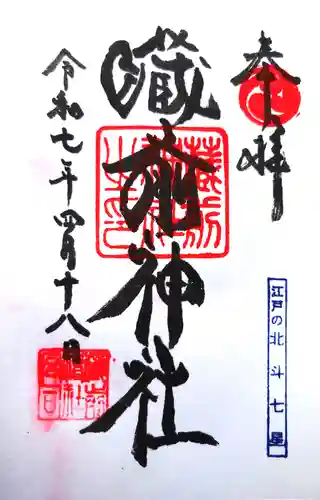 奉拝
江戸の北斗七星
蔵前神社
令和七年四月十八日